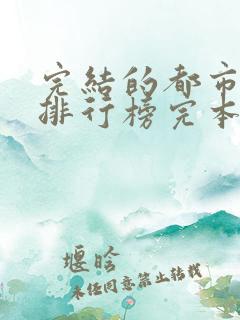 完結的都市
排行榜完本
堰晗
未经同意禁止转载